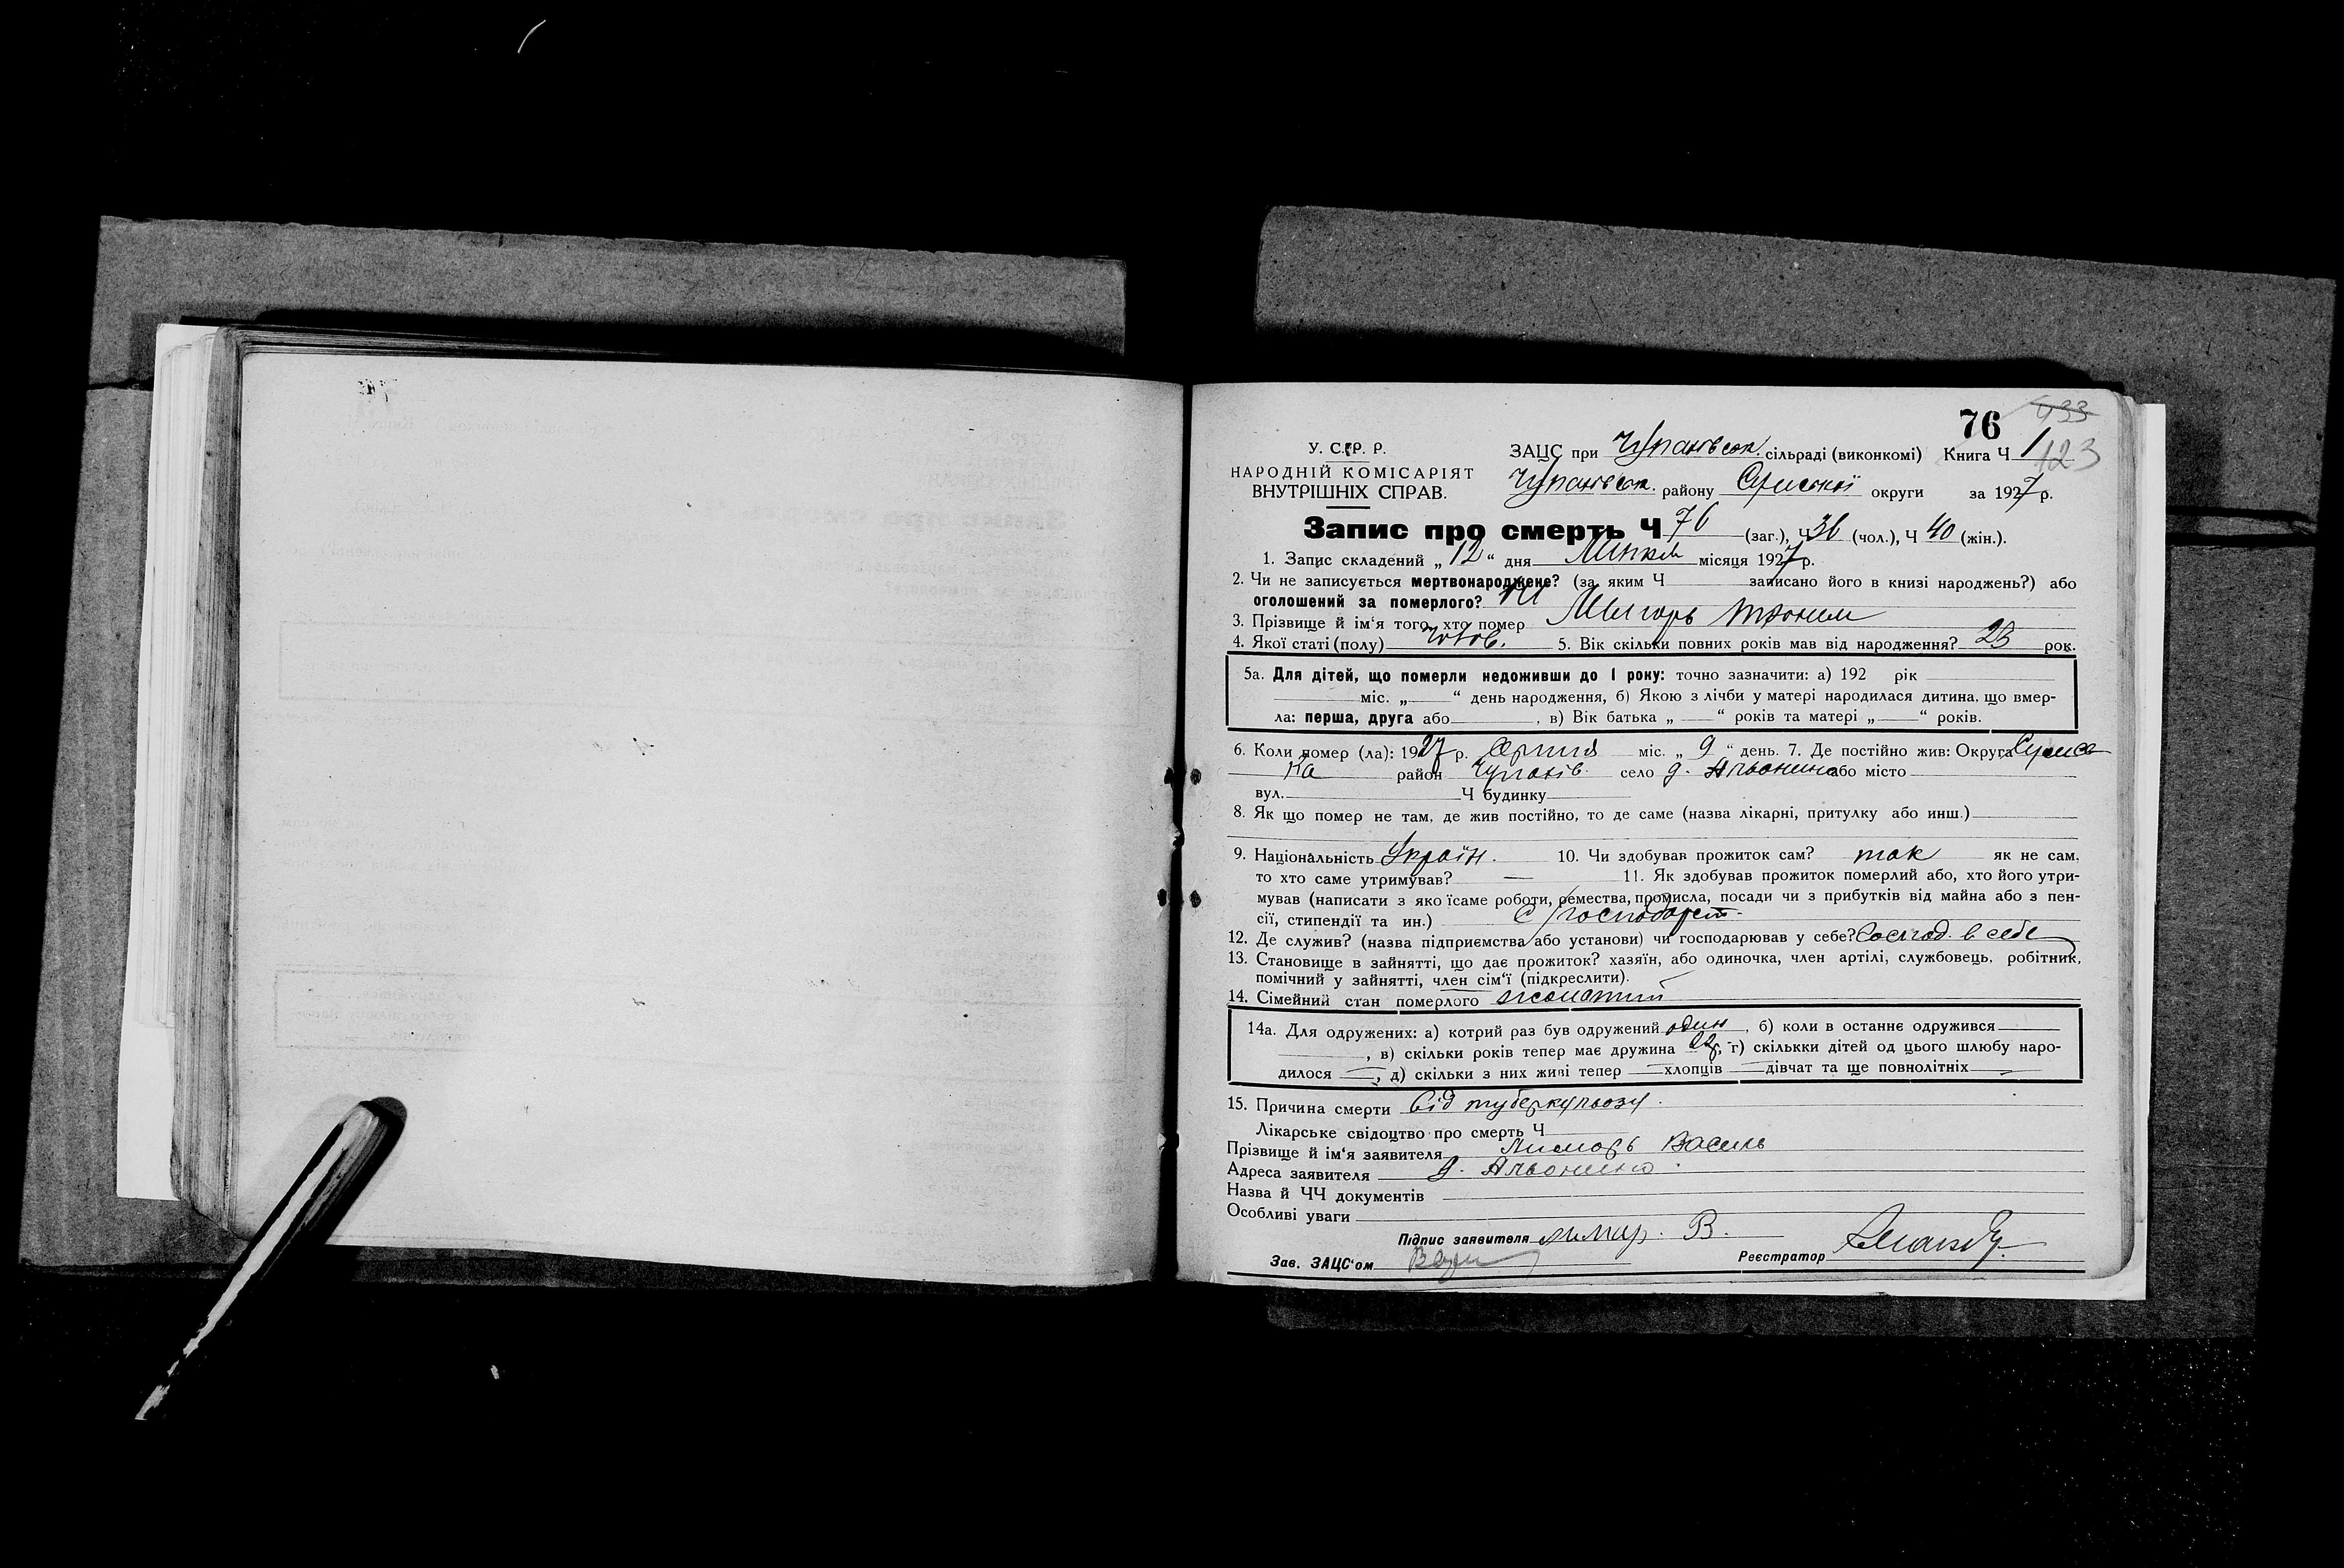 76 433
У. С. Р. Р. ЗАЦС при Чупахівськ. сільраді (виконкомі) Книга Ч 1
123
НАРОДНІЙ КОМІСАРІЯТ
ВНУТРІШНІХ СПРАВ. Чупахівськ. району Сумської округи за 1927 р.
Запис про смерть Ч 76 (заг.), Ч 36 (чол.), Ч 40 (жін.).
1. Запис складений „ 12 “ дня місяця 1927 р.
2. Чи не записується мертвонароджене? (за яким Ч записано його в книзі народжень?) або
оголошений за померлого? Ні
3. Прізвище й ім‘я того, хто помер
4. Якої статі (полу) чолов. 5. Вік скільки повних років мав від народження? 23 рок.
5а. Для дітей, що померли недоживши до 1 року: точно зазначити: а) 192 рік
міс. „ “ день народження, б) Якою з лічби у матері народилася дитина, що вмер-
ла: перша, друга або , в) Вік батька „ — “ років та матері „ — “ років.
6. Коли помер (ла): 1927 р. міс. „ 9 “ день. 7. Де постійно жив: Округа Сумсь
ка район Чупахів. село д. Альонино або місто
вул. Ч будинку
8. Як що помер не там, де жив постійно, то де саме (назва лікарні, притулку або инш.)
9. Національність Україн. 10. Чи здобував прожиток сам? так як не сам,
то хто саме утримував? — 11. Як здобував прожиток померлий або, хто його утри-
мував (написати з яко їсаме роботи, ремества, промисла, посади чи з прибутків від майна або з пен-
сії, стипендії та ин.) С/господарст.
12. Де служив? (назва підприємства або установи) чи господарював у себе? Господ. в себе
13. Становище в зайнятті, що дає прожиток? хазяїн, або одиночка, член артілі, службовець, робітник,
помічний у зайнятті, член сім‘ї (підкреслити).
14. Сімейний стан померлого жонатий
14а. Для одружених: а) котрий раз був одружений один , б) коли в останнє одружився
, в) скільки років тепер має дружина 22 р, г) скількки дітей од цього шлюбу наро-
дилося —, д) скільки з них живі тепер — хлопців — дівчат та ще повнолітніх —
15. Причина смерти Від туберкульозу.
Лікарське свідоцтво про смерть Ч
Прізвище й ім‘я заявителя Лимарь Василь
Адреса заявителя д. Альонино.
Назва й ЧЧ документів
Особливі уваги
Підпис заявителя Лимар. В.
Зав. ЗАЦС‘ом Реєстратор